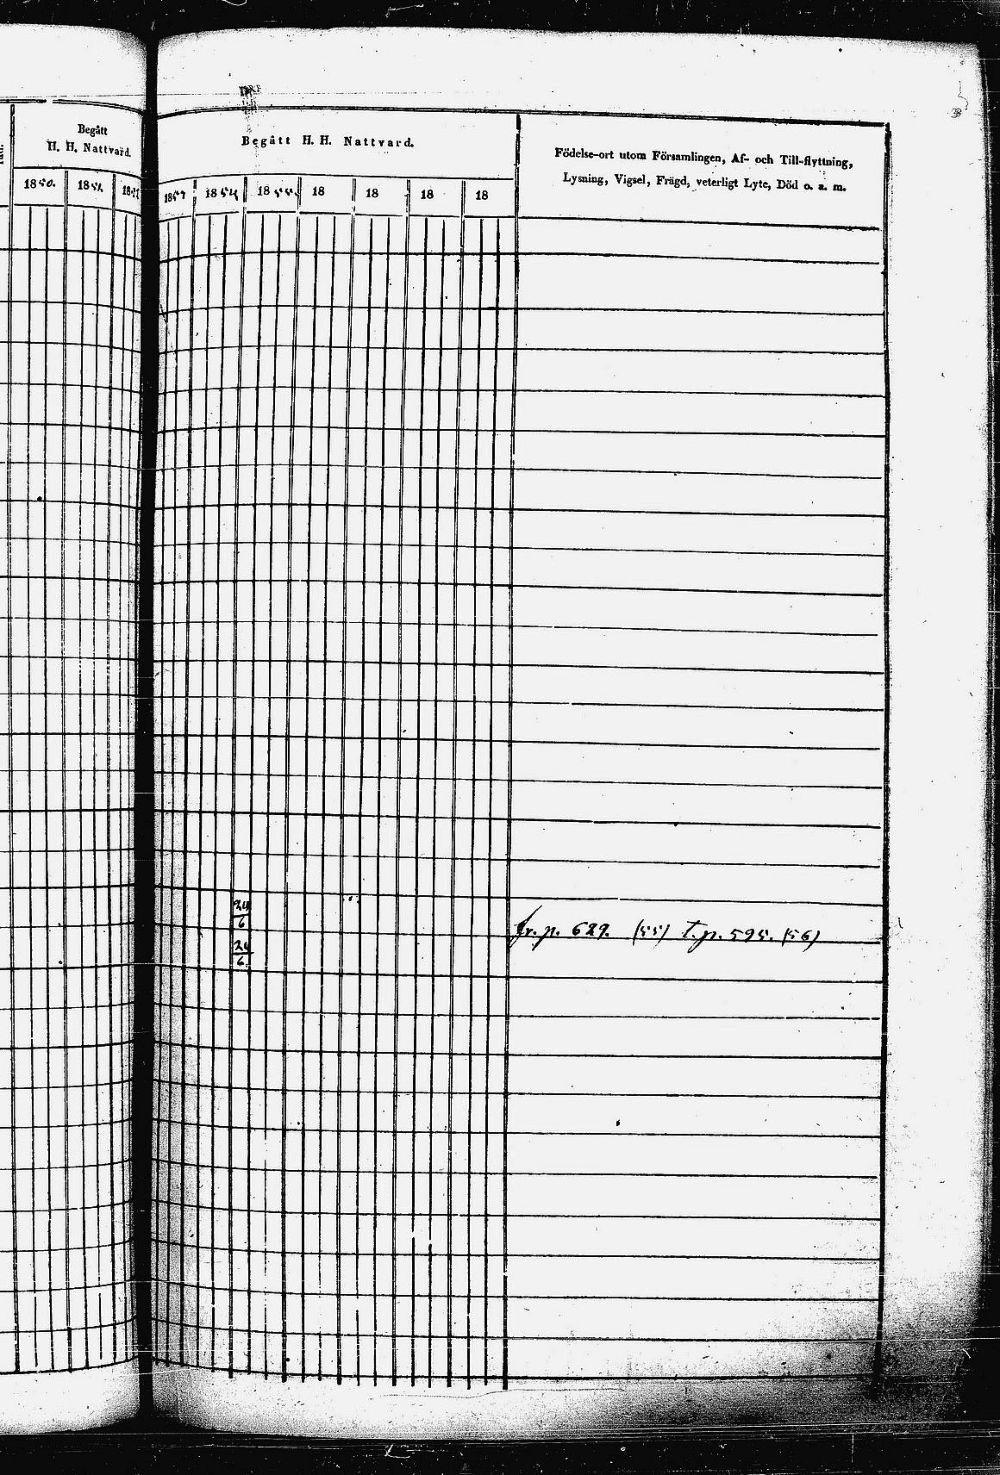 Begått
H. H. Nattvard.
1850. 1851. 1852
Begått H. H. Nattvard.
1853 1854 1855. 18 18 18 18
Födelse-ort utom Församlingen, Af- och Till-flyttning,
Lysning, Vigsel, Frägd, veterligt Lyte, Död o. s. m.
24
6
fr. p. 629. (55) t. p. 595. (56)
24
6.